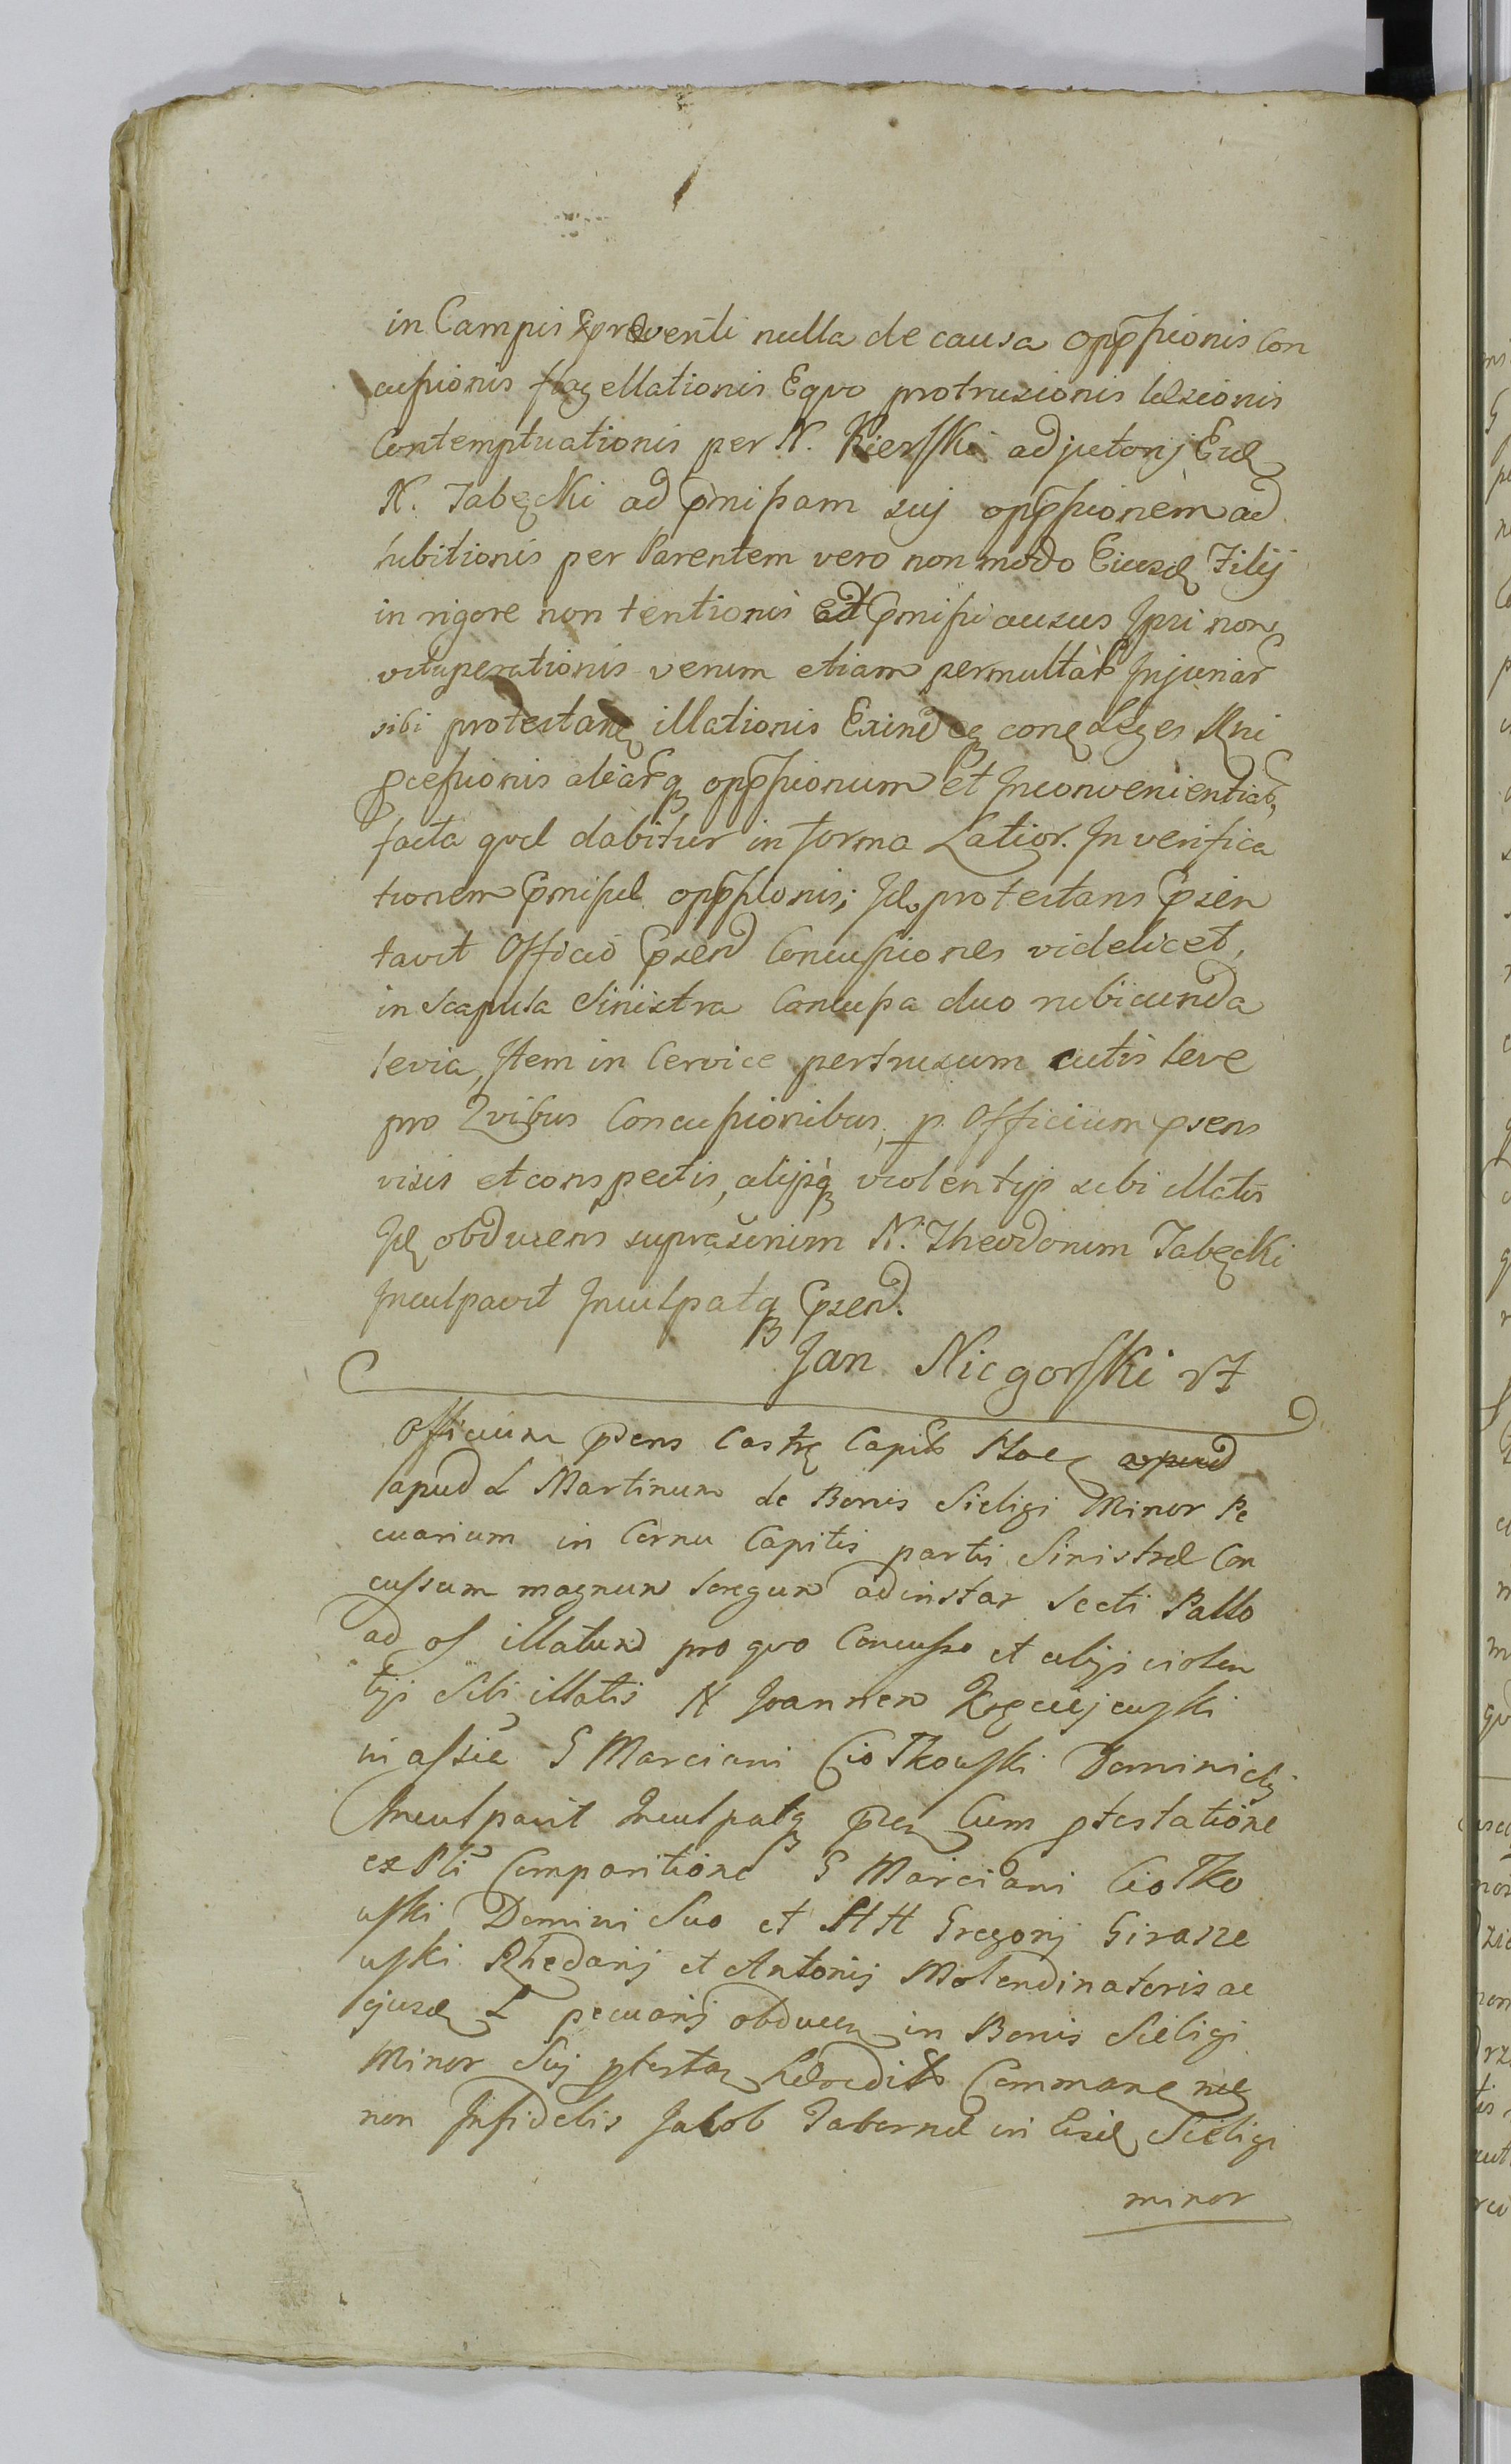 in Campis preventi nulla de causa oppssionis Con
cussionis flagellationis Eqvo protrusionis læsionis
Contemptuationis per N. Kierski adjutorij Eid
N. Tabęcki ad pmissam suj oppssionem ad
hibitionis per Parentem vero non modo Eiusd Filij
in rigore non tentionis ad pmissi ausus Ipsi non
vituperationis verum etiam permultar Injuriar
sibi protestan illationis Exindeq con Leges Rni
pcessionis aliarq oppssionum et Inconvenientiar
facta qvæ dabitur in forma Latior. In verifica
tionem pmissæ oppssionis; Id protestans psen
tavit Officio psend Concussiones videlicet,
in Scapula Sinistra Concussa duo rubicunda
levia, Item in Cervice pertrusum cutis leve
pro Qvibus Concussionibus, p Officium psens
visis et conspectis, alijsq violentijs sibi illatis
Id obducens supraseripm N. Theodorum Tabęcki
Inculpavit Inculpatq psend.
Jan Niegorski
Officium psens Castr Capit apud
apud L Martinum de Bonis Sieligi Minor Pe
cuarium in Cornu Capitis partis Sinistræ Con
cussum magnum adinstar Secti Pallo
ad os illatum pro qvo Concusso et alijs violen
tijs Sibi illatis N Joannem
in assia G Marciani Ciotkowski Dominici
Inculpavit Inculpatq pse Cum ptestatione
ex Pti Comparitione G Marciani Ciotko
wski Domini Suo et HH Gregorij Girasze
wski Rhedarij et Antonij Molendinatoris ac
ejusd L pecuarij obducen in Bonis Sieligi
Minor Suj ptestan hæredit Commoran nec
non Infidelis Jakob Tabernæ in Eisd Sieligi
minor